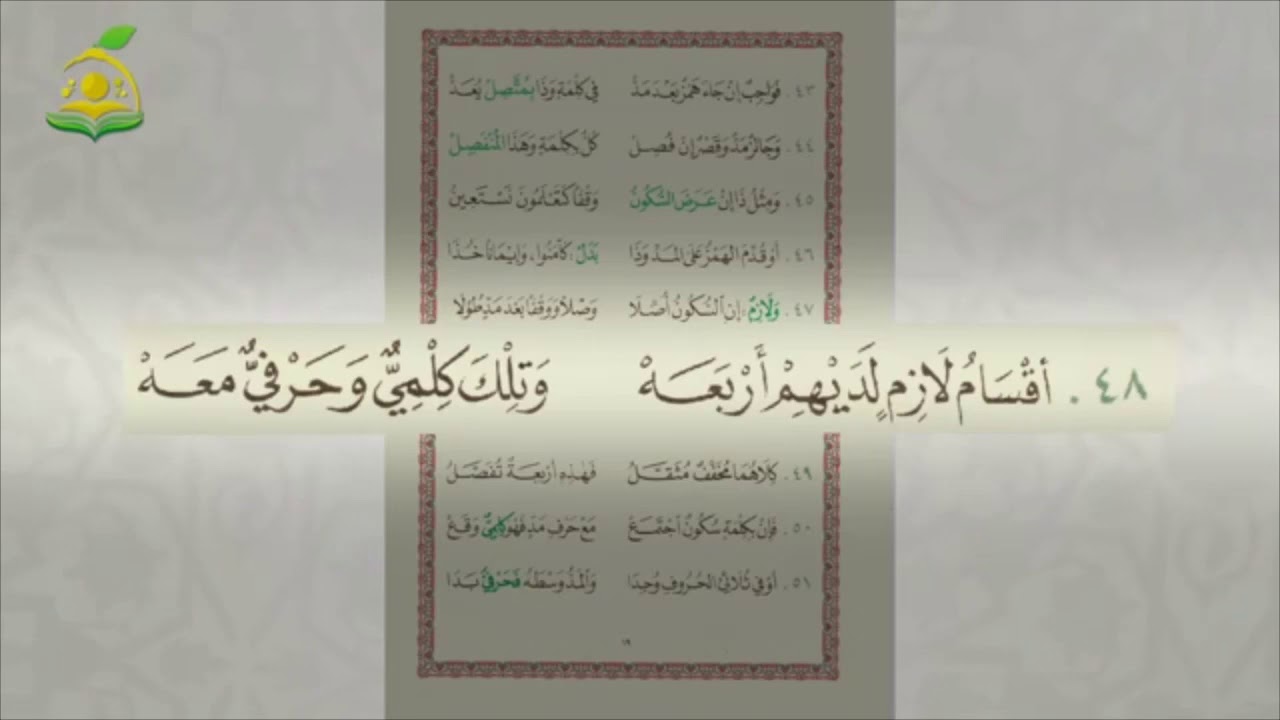 ٤٣. فَوَاجِبٌ إِنْ جَاءَ هَمْزٌ بَعْدَ مَدّْ فِي كِلْمَةٍ وَذَا بِمُتَّصِلْ يُعَدّْ
٤٤. وَجَائِزٌ مَدٌّ وَقَصْرٌ إِنْ فُصِلْ كُلٌّ بِكِلْمَةٍ وَهَذَا الْمُنْفَصِلْ
٤٥. وَمِثْلُ ذَا إِنْ عَرَضَ السُّكُونُ وَقْفًا كَتَعْلَمُونَ نَسْتَعِينُ
٤٦. أَوْ قُدِّمَ الْهَمْزُ عَلَى الْمَدِّ وَذَا بَدَلْ: كَآمَنُوا، وَإِيمَانًا خُذَا
٤٧. وَلَازِمٌ: إِنِ السُّكُونُ أُصِّلَا وَصْلًا وَوَقْفًا بَعْدَ مَدٍّ طُوِّلَا
٤٨. أَقْسَامُ لَازِمٍ لَدَيْهِمْ أَرْبَعَهْ وَتِلْكَ كِلْمِيٌّ وَحَرْفِيٌّ مَعَهْ
٤٩. كِلَاهُمَا مُخَفَّفٌ مُثَقَّلُ فَهَذِهِ أَرْبَعَةٌ تُفَصَّلُ
٥٠. فَإِنْ بِكِلْمَةٍ سُكُونٌ اجْتَمَعْ مَعْ حَرْفِ مَدٍّ فَهْوَ كِلْمِيٌّ وَقَعْ
٥١. أَوْ فِي ثُلَاثِيِّ الْحُرُوفِ وُجِدَا وَالْمَدُّ وَسْطَهُ فَحَرْفِيٌّ بَدَا
١٩